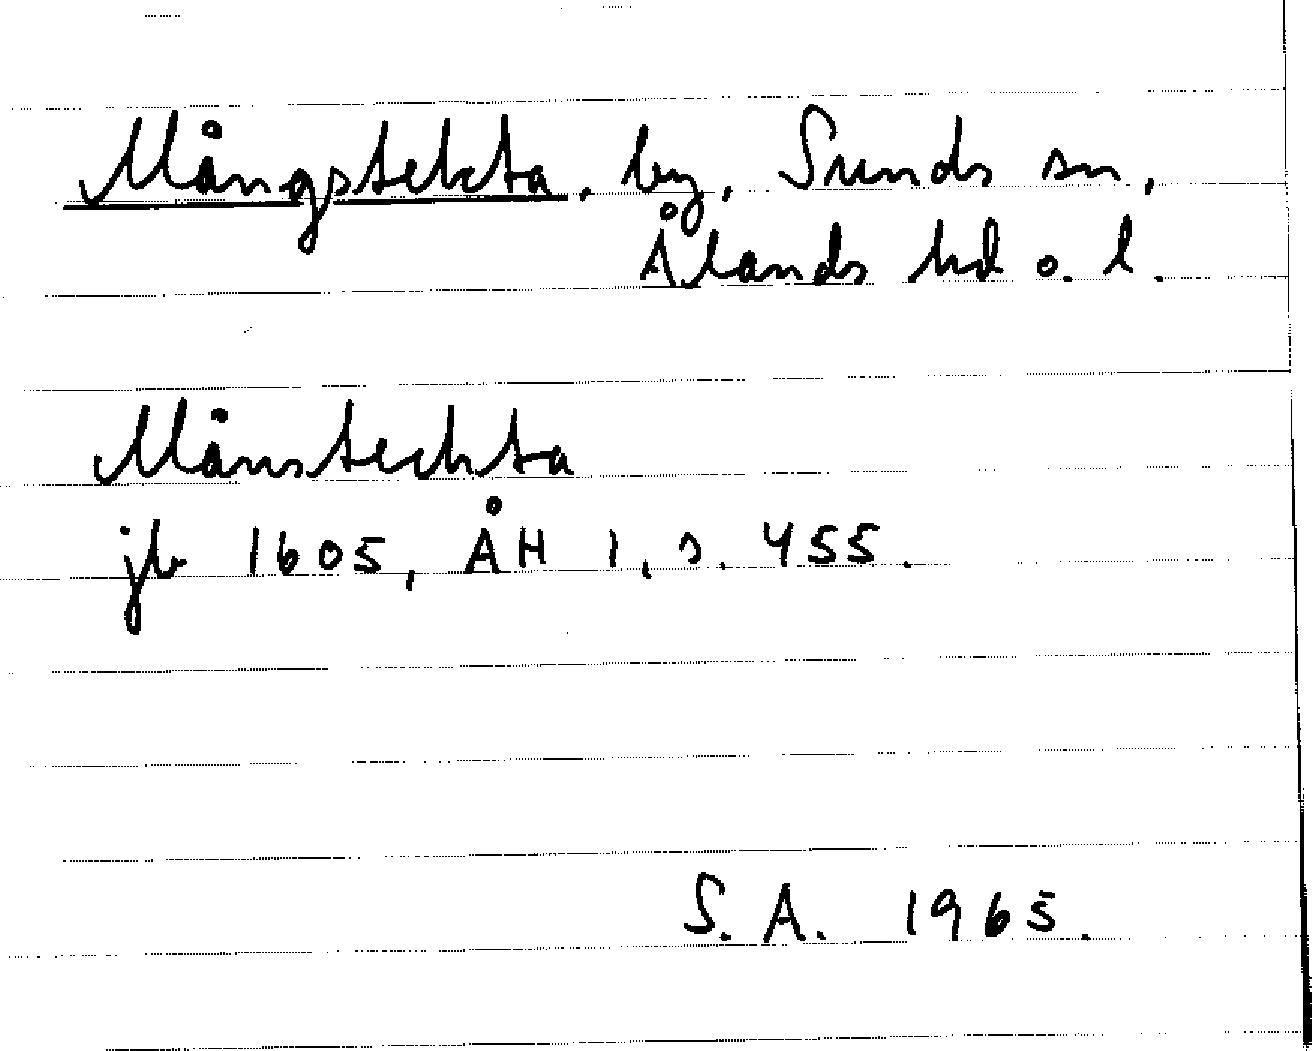 Mångstekta, by, Sunds sn,
Ålands hd o. l.
Månstechta
jb 1605, ÅH 1, s. 455.
S. A. 1965.